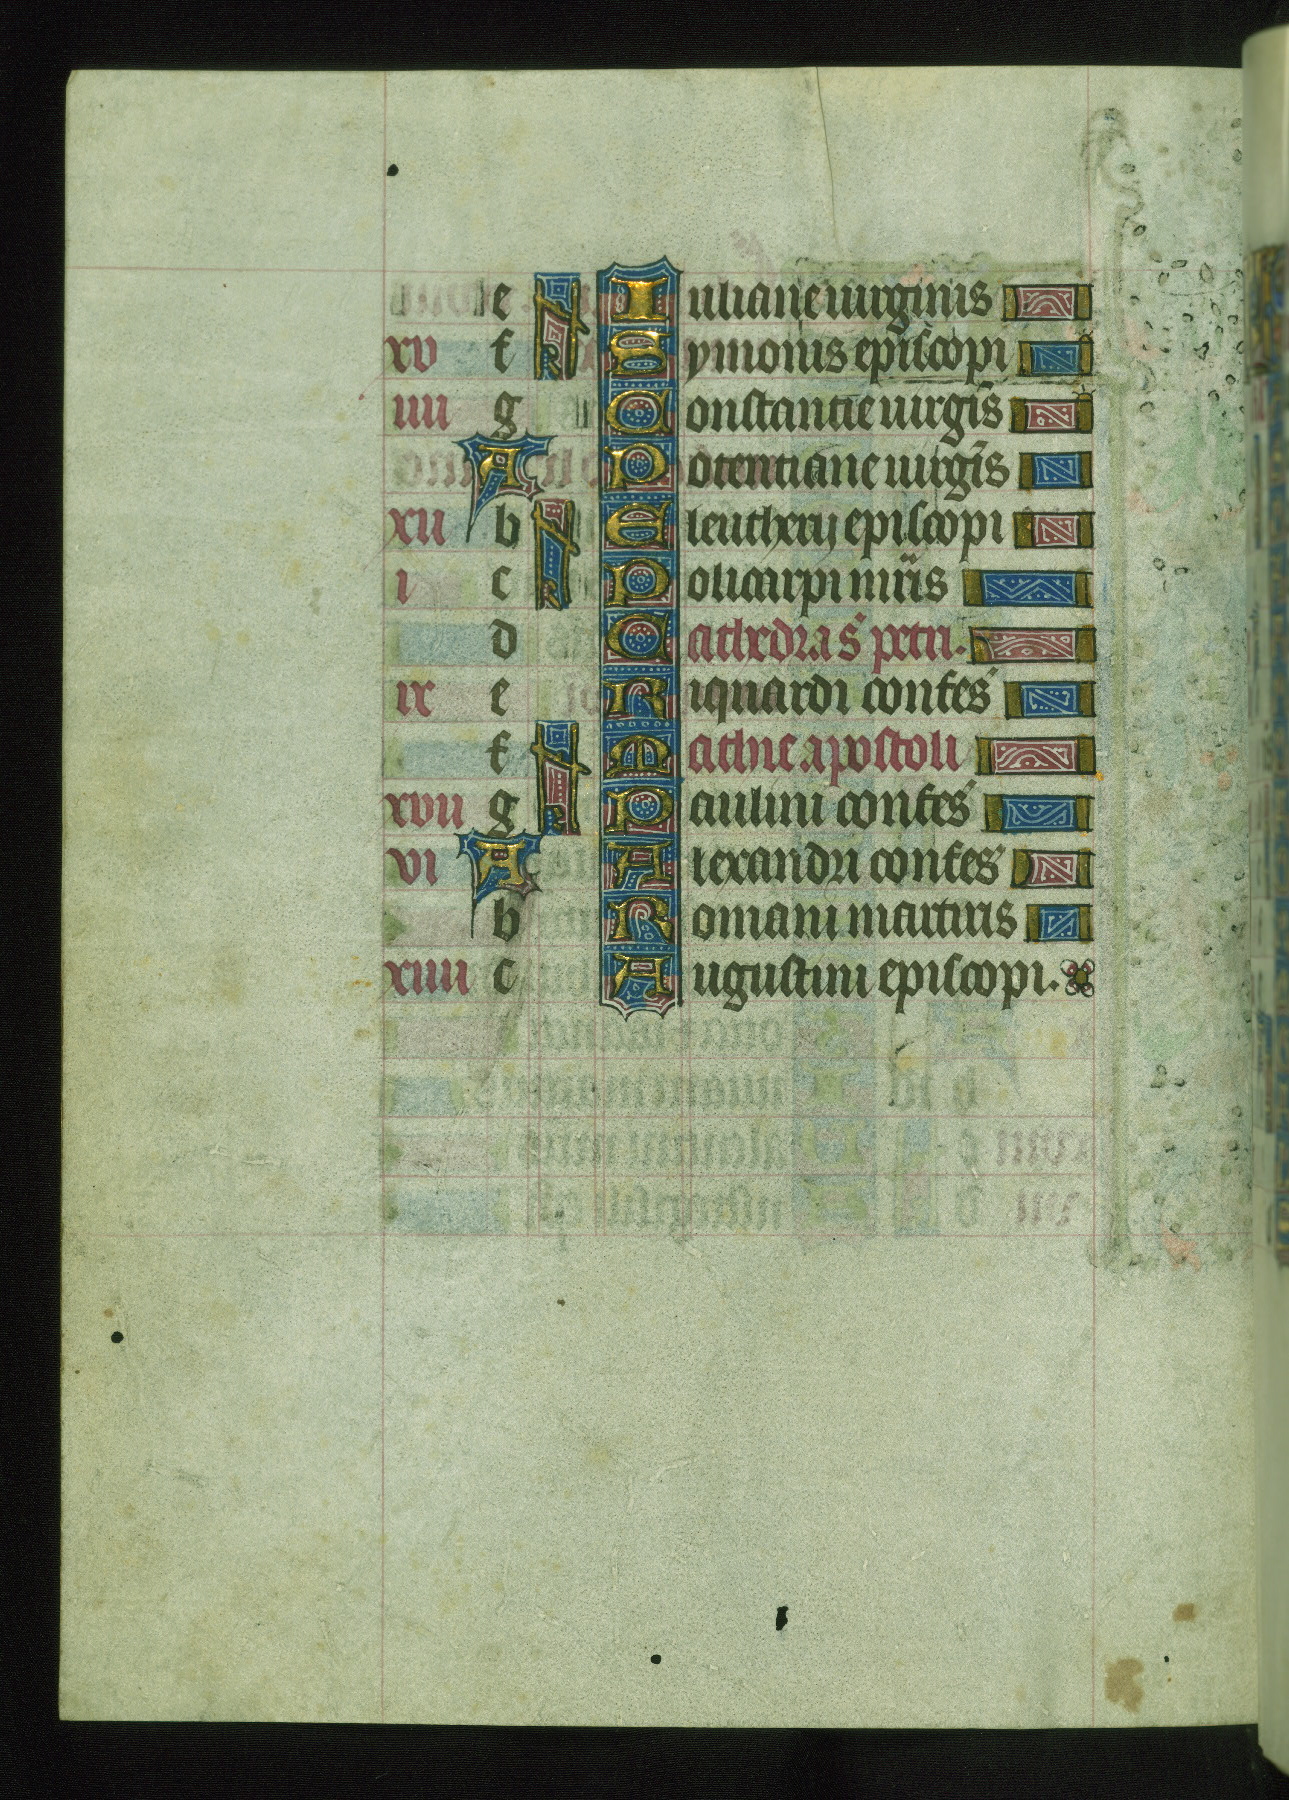 e kł Iuliane uirginis
xv f kł Symonis episcopi
iiii g Constantie uirgīs
A Potentiane uirgīs
xii b kł Eleutherij episcopi
i c Policarpi mr̄is
d Cathedra s̄ petri.
ix e Riquardi confes̄
f kł Mathie apostoli
xvii g Paulini confes̄
vi A Alexandri confes̄
b Romani martiris
xiiii c Augustini episcopi.